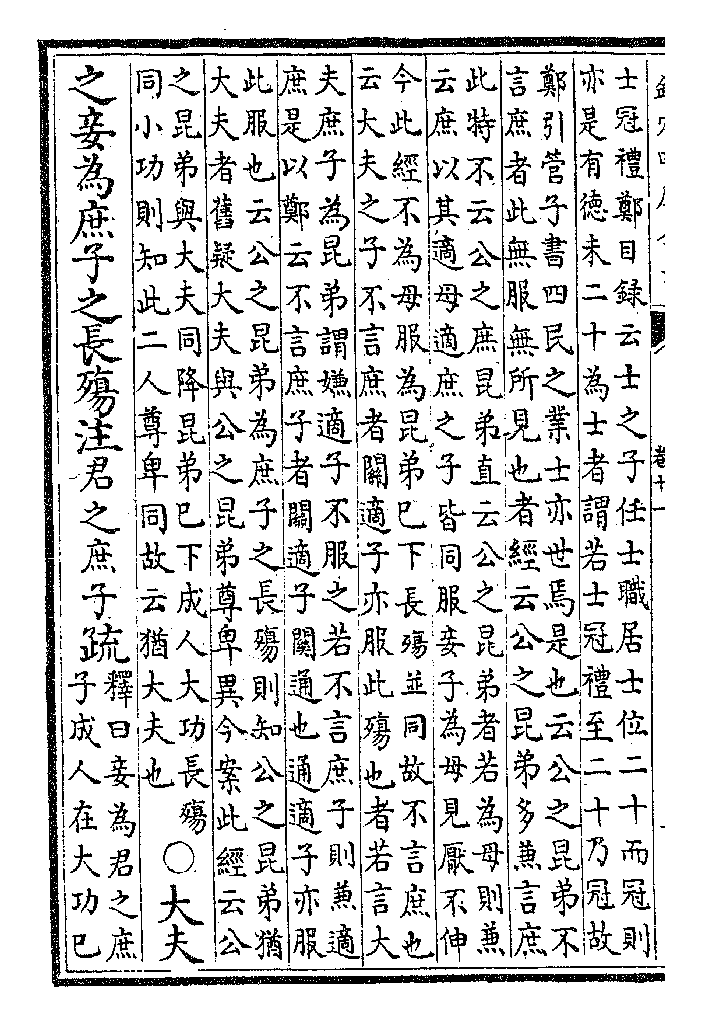 士冠禮鄭目録云士之子任士職居士位二十而冠則
亦是有德未二十為士者謂若士冠禮至二十乃冠故
鄭引管子書四民之業士亦世焉是也云公之昆弟不
言庶者此無服無所見也者經云公之昆弟多兼言庶
此特不云公之庶昆弟直云公之昆弟者若為母則兼
云庶以其適母適庶之子皆同服妾子為母見厭不伸
今此經不為母服為昆弟巳下長殤並同故不言庶也
云大夫之子不言庶者關適子亦服此殤也者若言大
夫庶子為昆弟謂嫌適子不服之若不言庶子則兼適
庶是以鄭云不言庶子者關適子關通也通適子亦服
此服也云公之昆弟為庶子之長殤則知公之昆弟猶
大夫者舊疑大夫與公之昆弟尊卑異今案此經云公
之昆弟與大夫同降昆弟巳下成人大功長殤
同小功則知此二人尊卑同故云猶大夫也
○大夫
之妾為庶子之長殤注君之庶子疏
釋曰妾為君之庶
子成人在大功巳